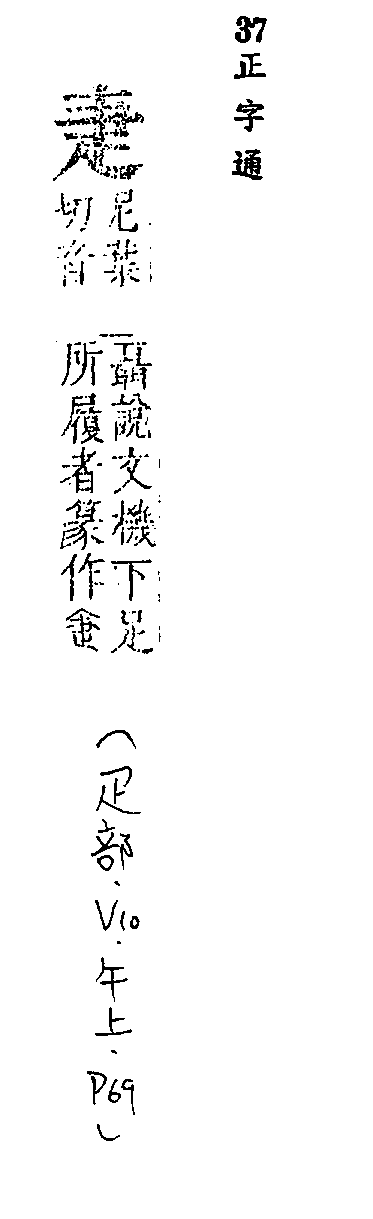 37正字通
疌
尼葉
切音
聶說文機下足
所履者篆作
（疋部．V10．午上．P69）